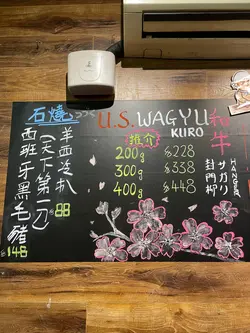 石燒
U.S. WAGYU 和牛
KURO
推介
200g $228
300g $338
400g $448
HANGER
サガリ
封門柳
羊西冷扒
(天下第一刀) $88
西班牙黑毛豬
$148